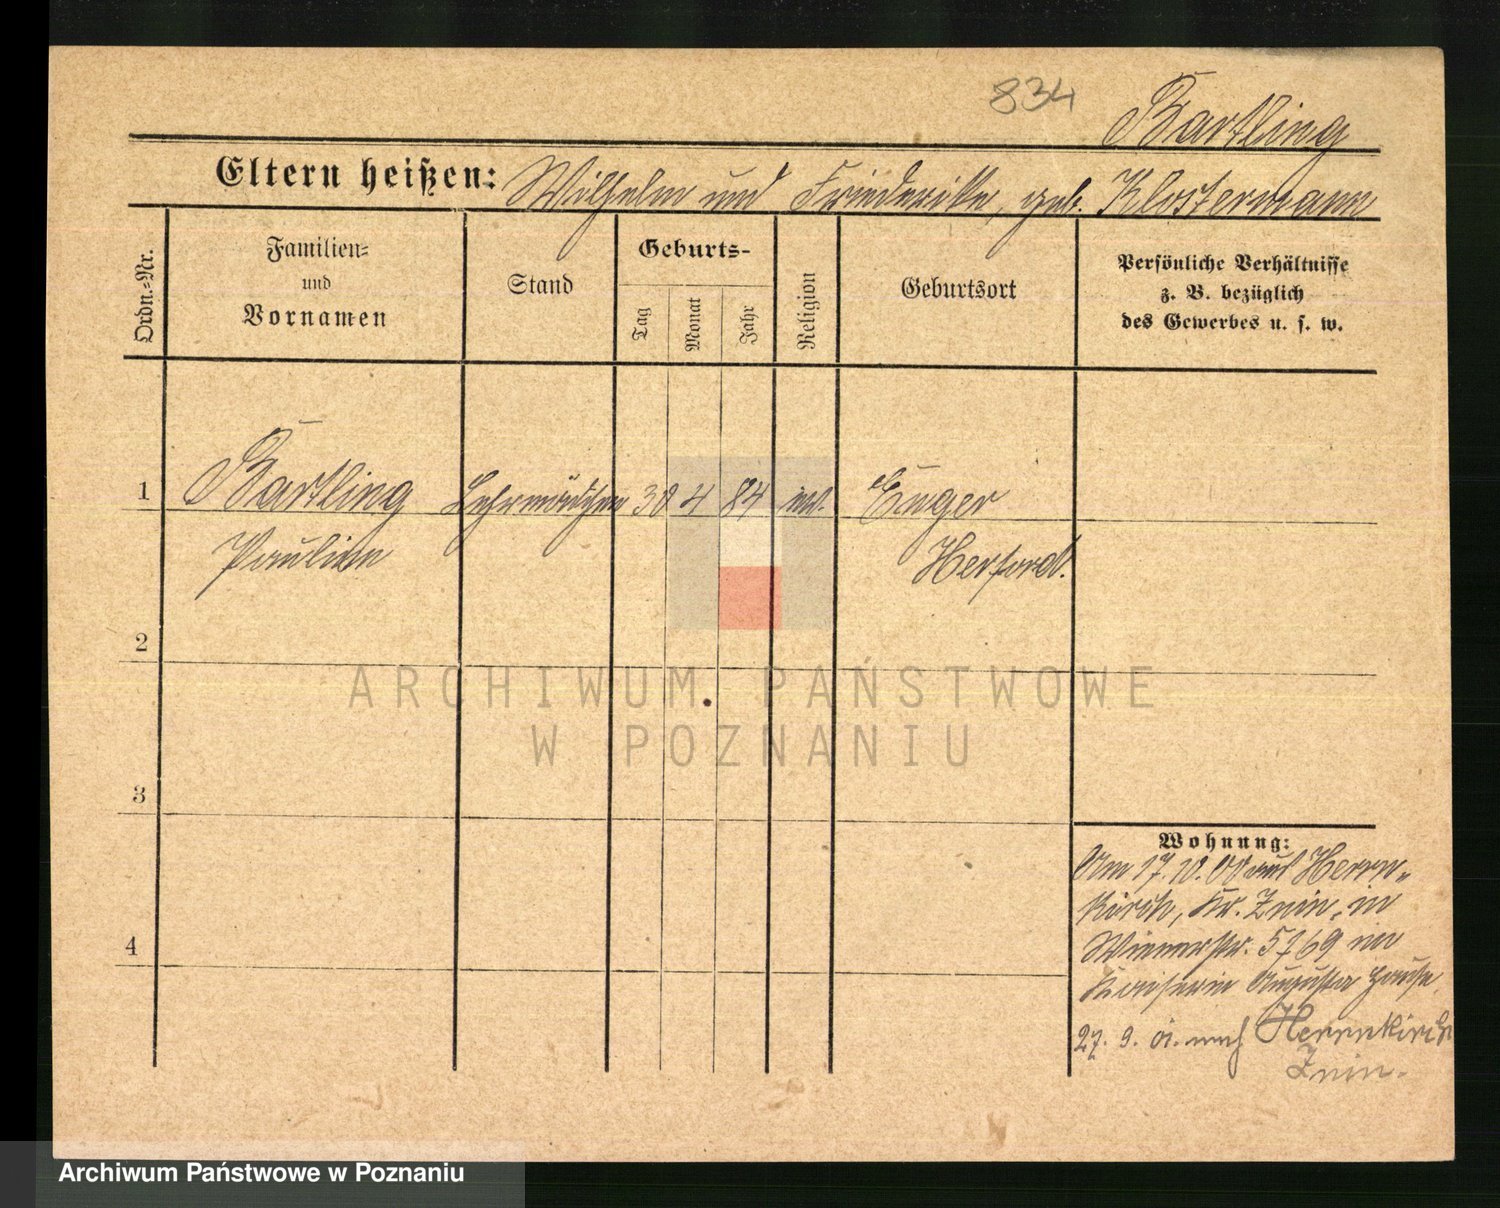 834
Bartling
Eltern heißen: Wilhelm und Friederike, geb. Klostermann
Ordn.-Nr.
Familien-
und
Vornamen
Stand
Geburts-
Tag
Monat
Jahr
Religion
Geburtsort
Persönliche Verhältnisse
z. B. bezüglich
des Gewerbes u. s. w.
1 Bartling Lehrmädchen 30 4 84 ev. Enger
Pauline Herford.
2
ARCHIWUM PAŃSTWOWE
W POZNANIU
3
4
Wohnung:
Am 17. 10. 00 aus Herrn-
kirch, Kr. Znin, in
Wienerstr. 5/69 im
Kaiserin Augusta Hause.
27. 9. 01. nach Herrnkirch
Znin.
Archiwum Państwowe w Poznaniu